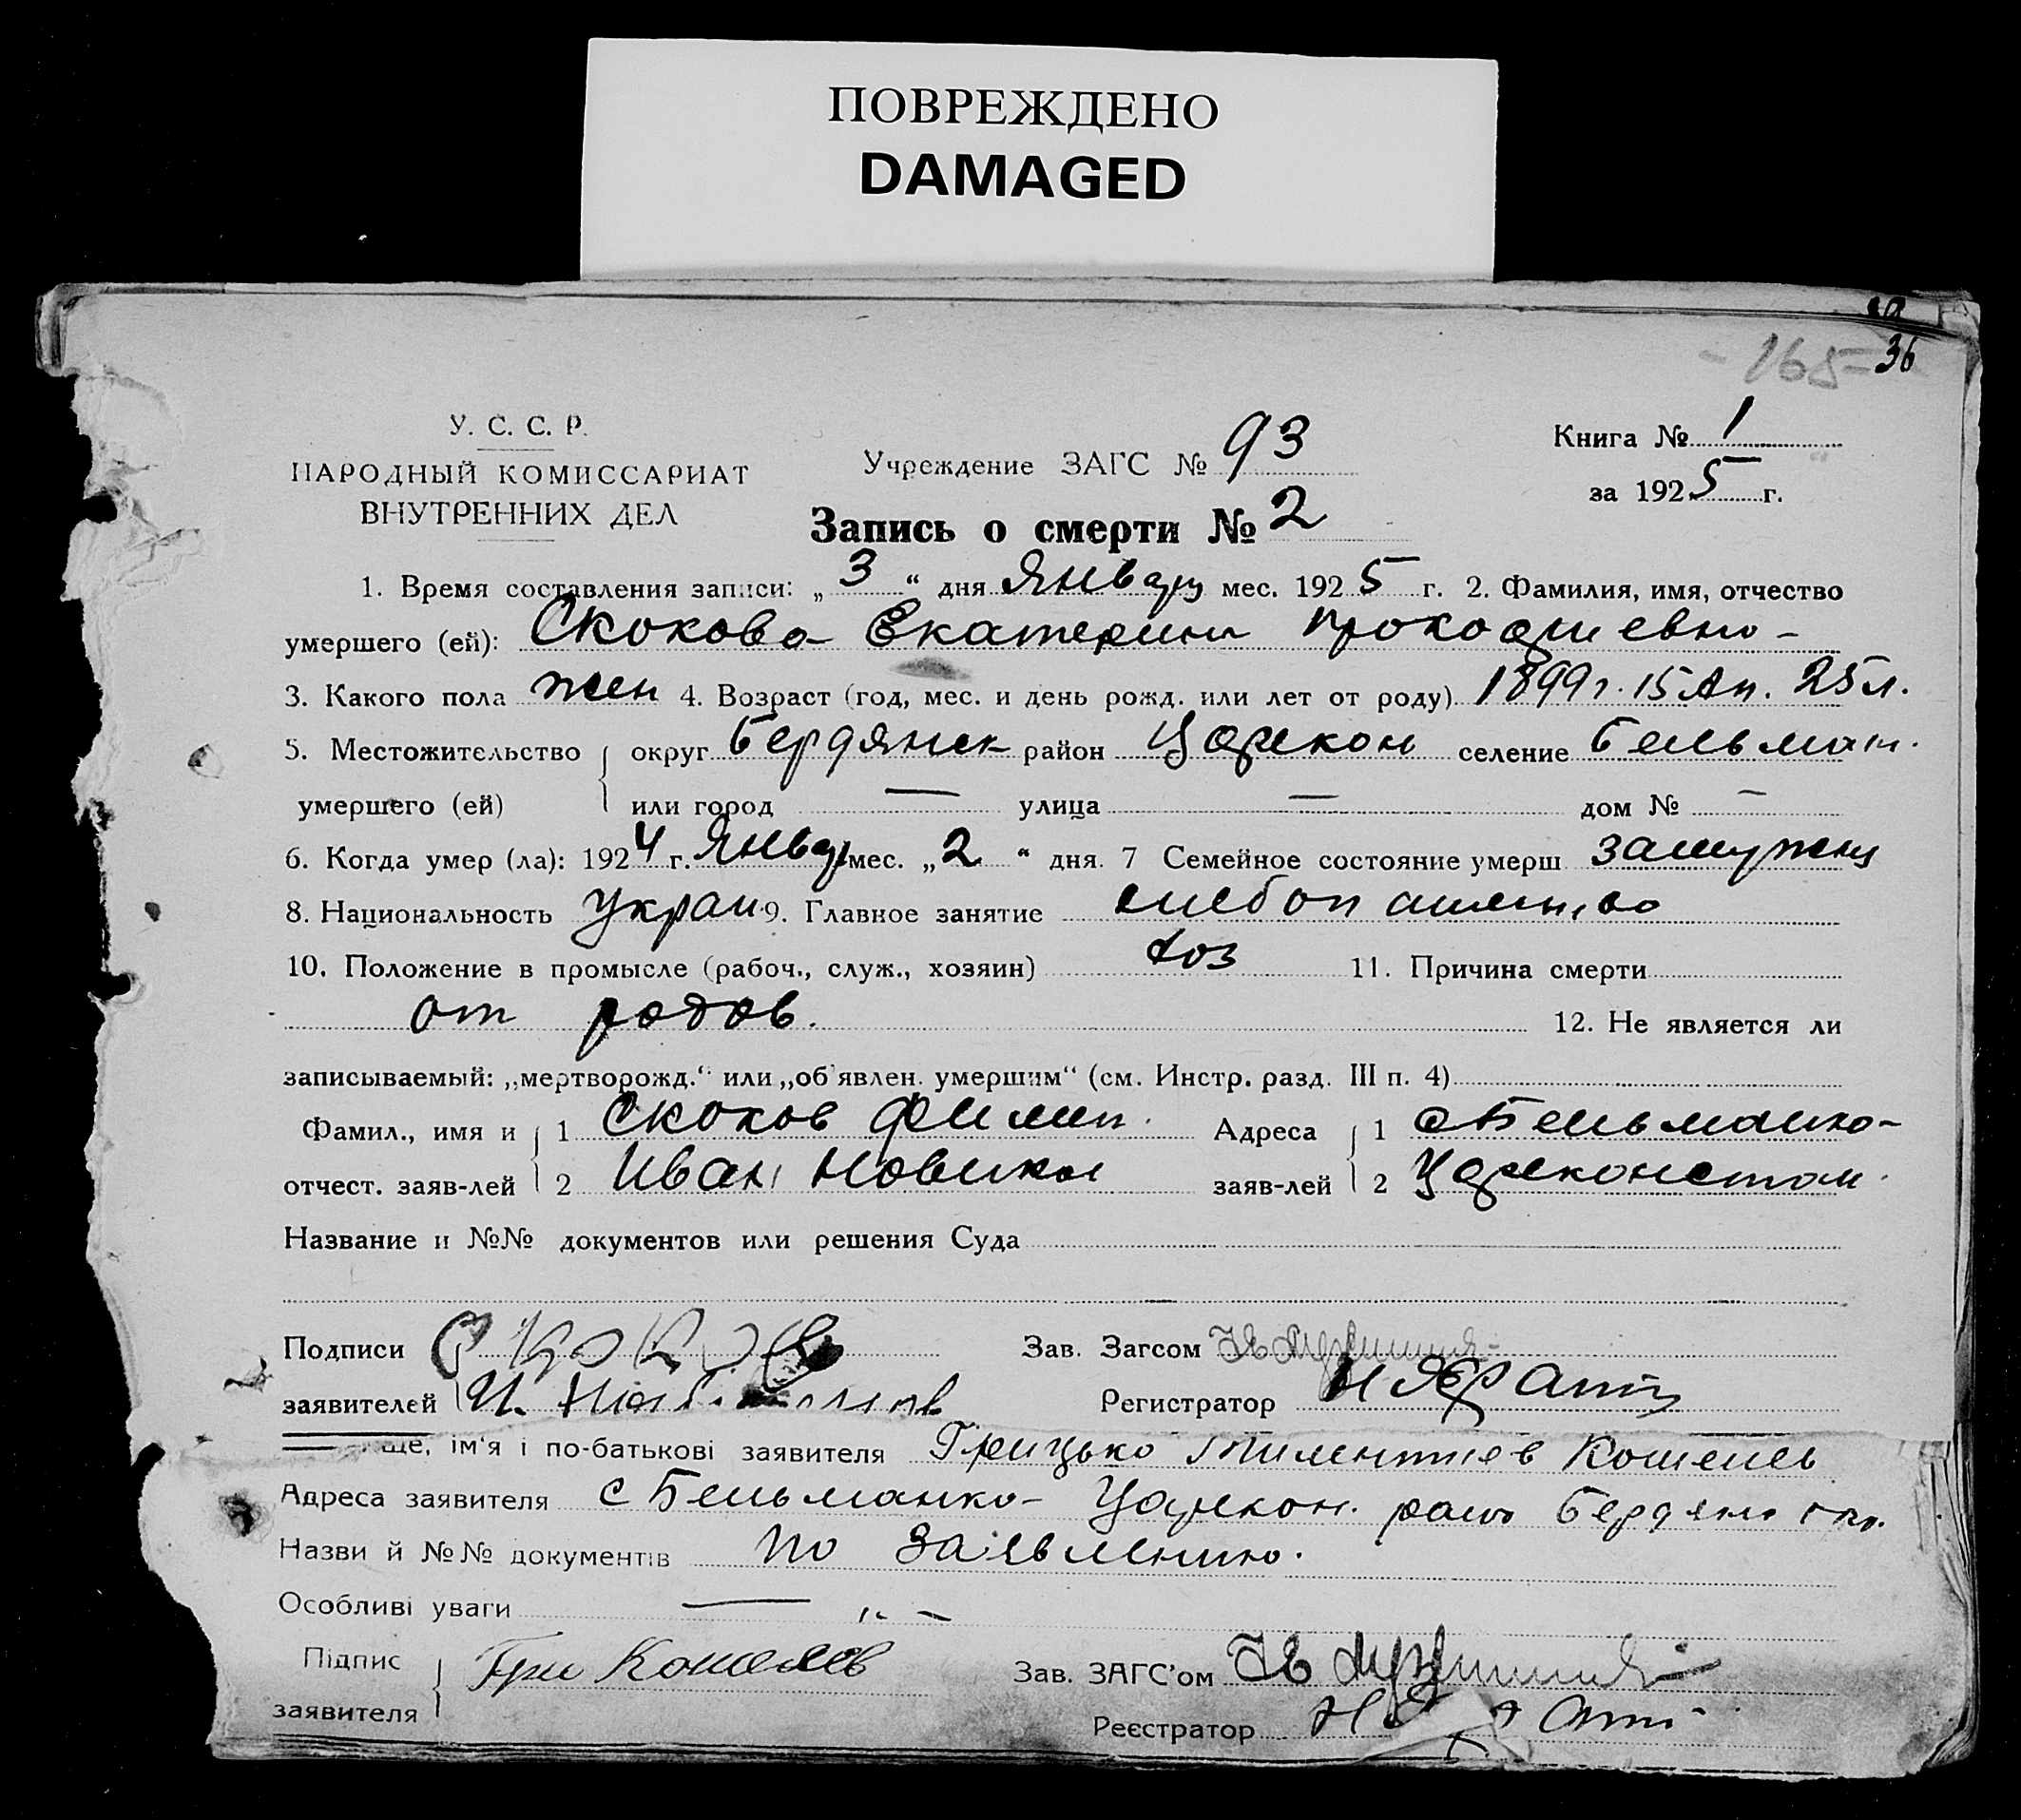 ПОВРЕЖДЕНО
DAMAGED
-165- 36
У. С. С. Р.
НАРОДНЫЙ КОМИССАРИАТ
ВНУТРЕННИХ ДЕЛ
Учреждение ЗАГС № 93
Книга № 1
за 1925 г.
Запись о смерти № 2
1. Время составления записи: „3“ дня Январ мес. 1925 г. 2. Фамилия, имя, отчество
умершего (ей): Скокова Екатерина Прокофиевно-
3. Какого пола жен 4. Возраст (год, мес. и день рожд. или лет от роду) 1899 г. 15 Ап. 25 л.
5. Местожительство округ Бердянск район Царекон селение Бельман.
умершего (ей) или город — улица — дом № —
6. Когда умер (ла): 1924 г. Январ мес. „2“ дня. 7 Семейное состояние умерш замужня
8. Национальность Украи. 9. Главное занятие хлебопашество
10. Положение в промысле (рабоч., служ., хозяин) хоз 11. Причина смерти
от родов. 12. Не является ли
записываемый: „мертворожд.“ или „об'явлен. умершим“ (см. Инстр. разд. III п. 4)
Фамил., имя и 1 Скоков Филип. Адреса 1 с Бельманко-
отчест. заяв-лей 2 Иван Новиков заяв-лей 2 Цареконстан.
Название и №№ документов или решения Суда
Подписи Скоков Зав. Загсом
заявителей И. Регистратор
ще, ім'я і по-батькові заявителя Грицько Кошелев
Адреса заявителя с Бельманко- Царекон. райо Бердянс окр.
Назви й №№ документів по заявлению.
Особливі уваги — „ —
Підпис Гри Кошелев Зав. ЗАГС'ом
заявителя Реєстратор